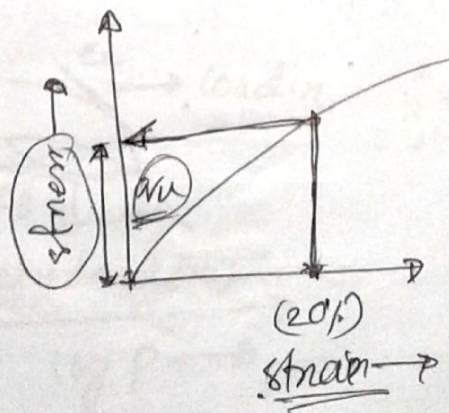 stress
(20%)
strain